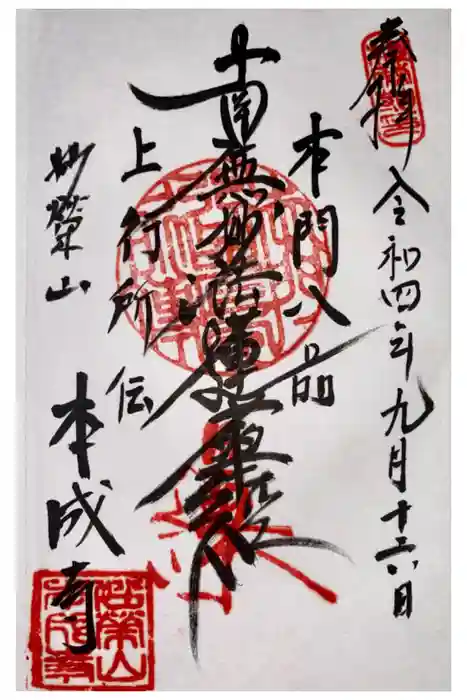 奉拝
令和四年九月十六日
本門八品
南無妙法蓮華経
上行所伝
妙榮山
本成寺